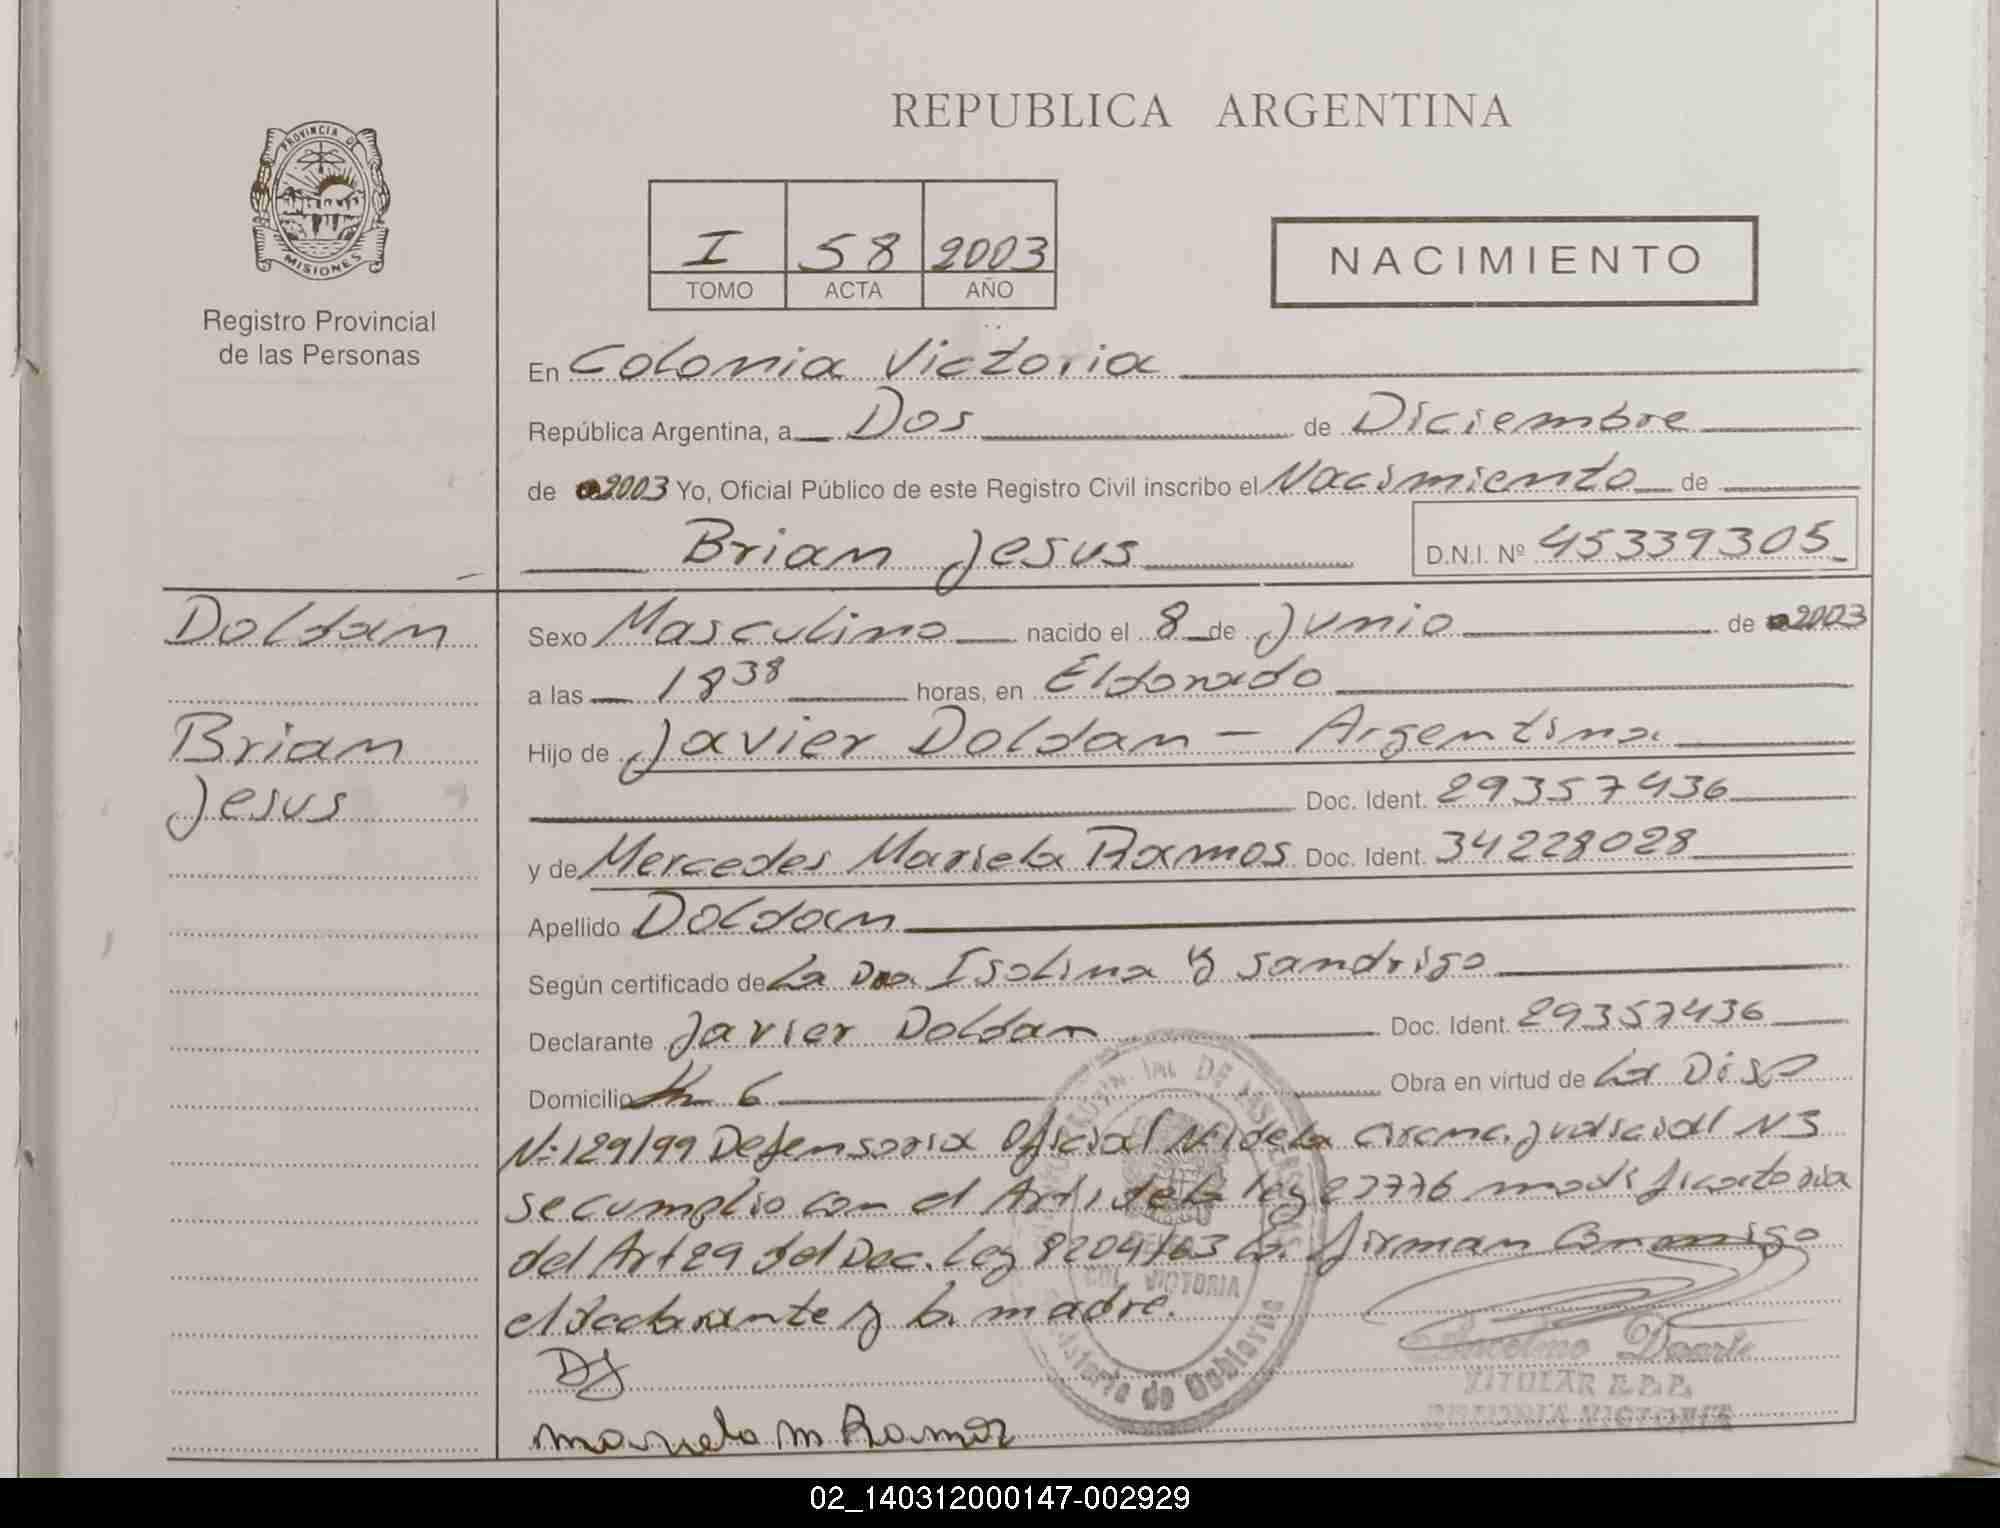 PROVINCIA DE
MISIONES
Registro Provincial
de las Personas
REPUBLICA ARGENTINA
I 58 2003
TOMO ACTA AÑO
NACIMIENTO
En Colonia Victoria
República Argentina, a Dos de Diciembre
de 2003 Yo, Oficial Público de este Registro Civil inscribo el Nacimiento de
Brian Jesus D.N.I. Nº 45339305
Doldan
Brian
Jesus
Sexo Masculino nacido el 8 de Junio de 2003
a las 18 38 horas, en Eldorado
Hijo de Javier Doldan - Argentina
Doc. Ident. 29357436
y de Mercedes Mariela Ramos Doc. Ident. 34228028
Apellido Doldan
Según certificado de La Dra Isolina y Sandrigo
Declarante Javier Doldan Doc. Ident. 29357436
Domicilio Km 6 Obra en virtud de La Disp
Nº 129/99 Defensoria Oficial Nº 1 de la circunc. judicial N 3
se cumplio con el Art 1 de la ley 23776 modificatoria
del Art 29 del Dec. Ley 8204/63 firman Conmigo
el declarante y la madre.
DJ
COL. VICTORIA
Ministerio de Gobierno
Anselmo Duarte
TITULAR R.P.P.
COLONIA VICTORIA
Mariela M Ramos
02_140312000147-002929